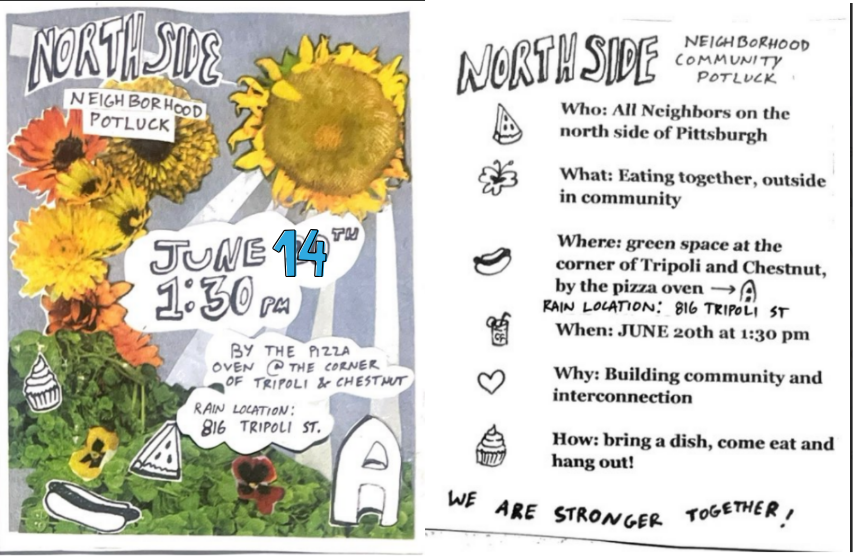 NORTH SIDE
NEIGHBORHOOD
POTLUCK
JUNE 14TH
1:30 PM
BY THE PIZZA
OVEN @ THE CORNER
OF TRIPOLI & CHESTNUT
RAIN LOCATION:
816 TRIPOLI ST.
NORTH SIDE
NEIGHBORHOOD
COMMUNITY
POTLUCK
Who: All Neighbors on the
north side of Pittsburgh
What: Eating together, outside
in community
Where: green space at the
corner of Tripoli and Chestnut,
by the pizza oven →
RAIN LOCATION: 816 TRIPOLI ST
When: JUNE 20th at 1:30 pm
Why: Building community and
interconnection
How: bring a dish, come eat and
hang out!
WE ARE STRONGER TOGETHER!